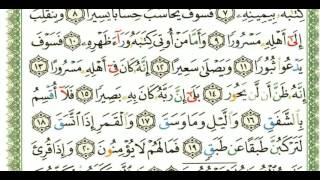 كِتَٰبَهُۥ بِيَمِينِهِۦ ٧ فَسَوْفَ يُحَاسَبُ حِسَابًا يَسِيرًا ٨ وَيَنقَلِبُ
إِلَىٰٓ أَهْلِهِۦ مَسْرُورًا ٩ وَأَمَّا مَنْ أُوتِىَ كِتَٰبَهُۥ وَرَآءَ ظَهْرِهِۦ ١٠ فَسَوْفَ
يَدْعُوا۟ ثُبُورًا ١١ وَيَصْلَىٰ سَعِيرًا ١٢ إِنَّهُۥ كَانَ فِىٓ أَهْلِهِۦ مَسْرُورًا ١٣
إِنَّهُۥ ظَنَّ أَن لَّن يَحُورَ ١٤ بَلَىٰٓ إِنَّ رَبَّهُۥ كَانَ بِهِۦ بَصِيرًا ١٥ فَلَآ أُقْسِمُ
بِٱلشَّفَقِ ١٦ وَٱلَّيْلِ وَمَا وَسَقَ ١٧ وَٱلْقَمَرِ إِذَا ٱتَّسَقَ ١٨
لَتَرْكَبُنَّ طَبَقًا عَن طَبَقٍ ١٩ فَمَا لَهُمْ لَا يُؤْمِنُونَ ٢٠ وَإِذَا قُرِئَ